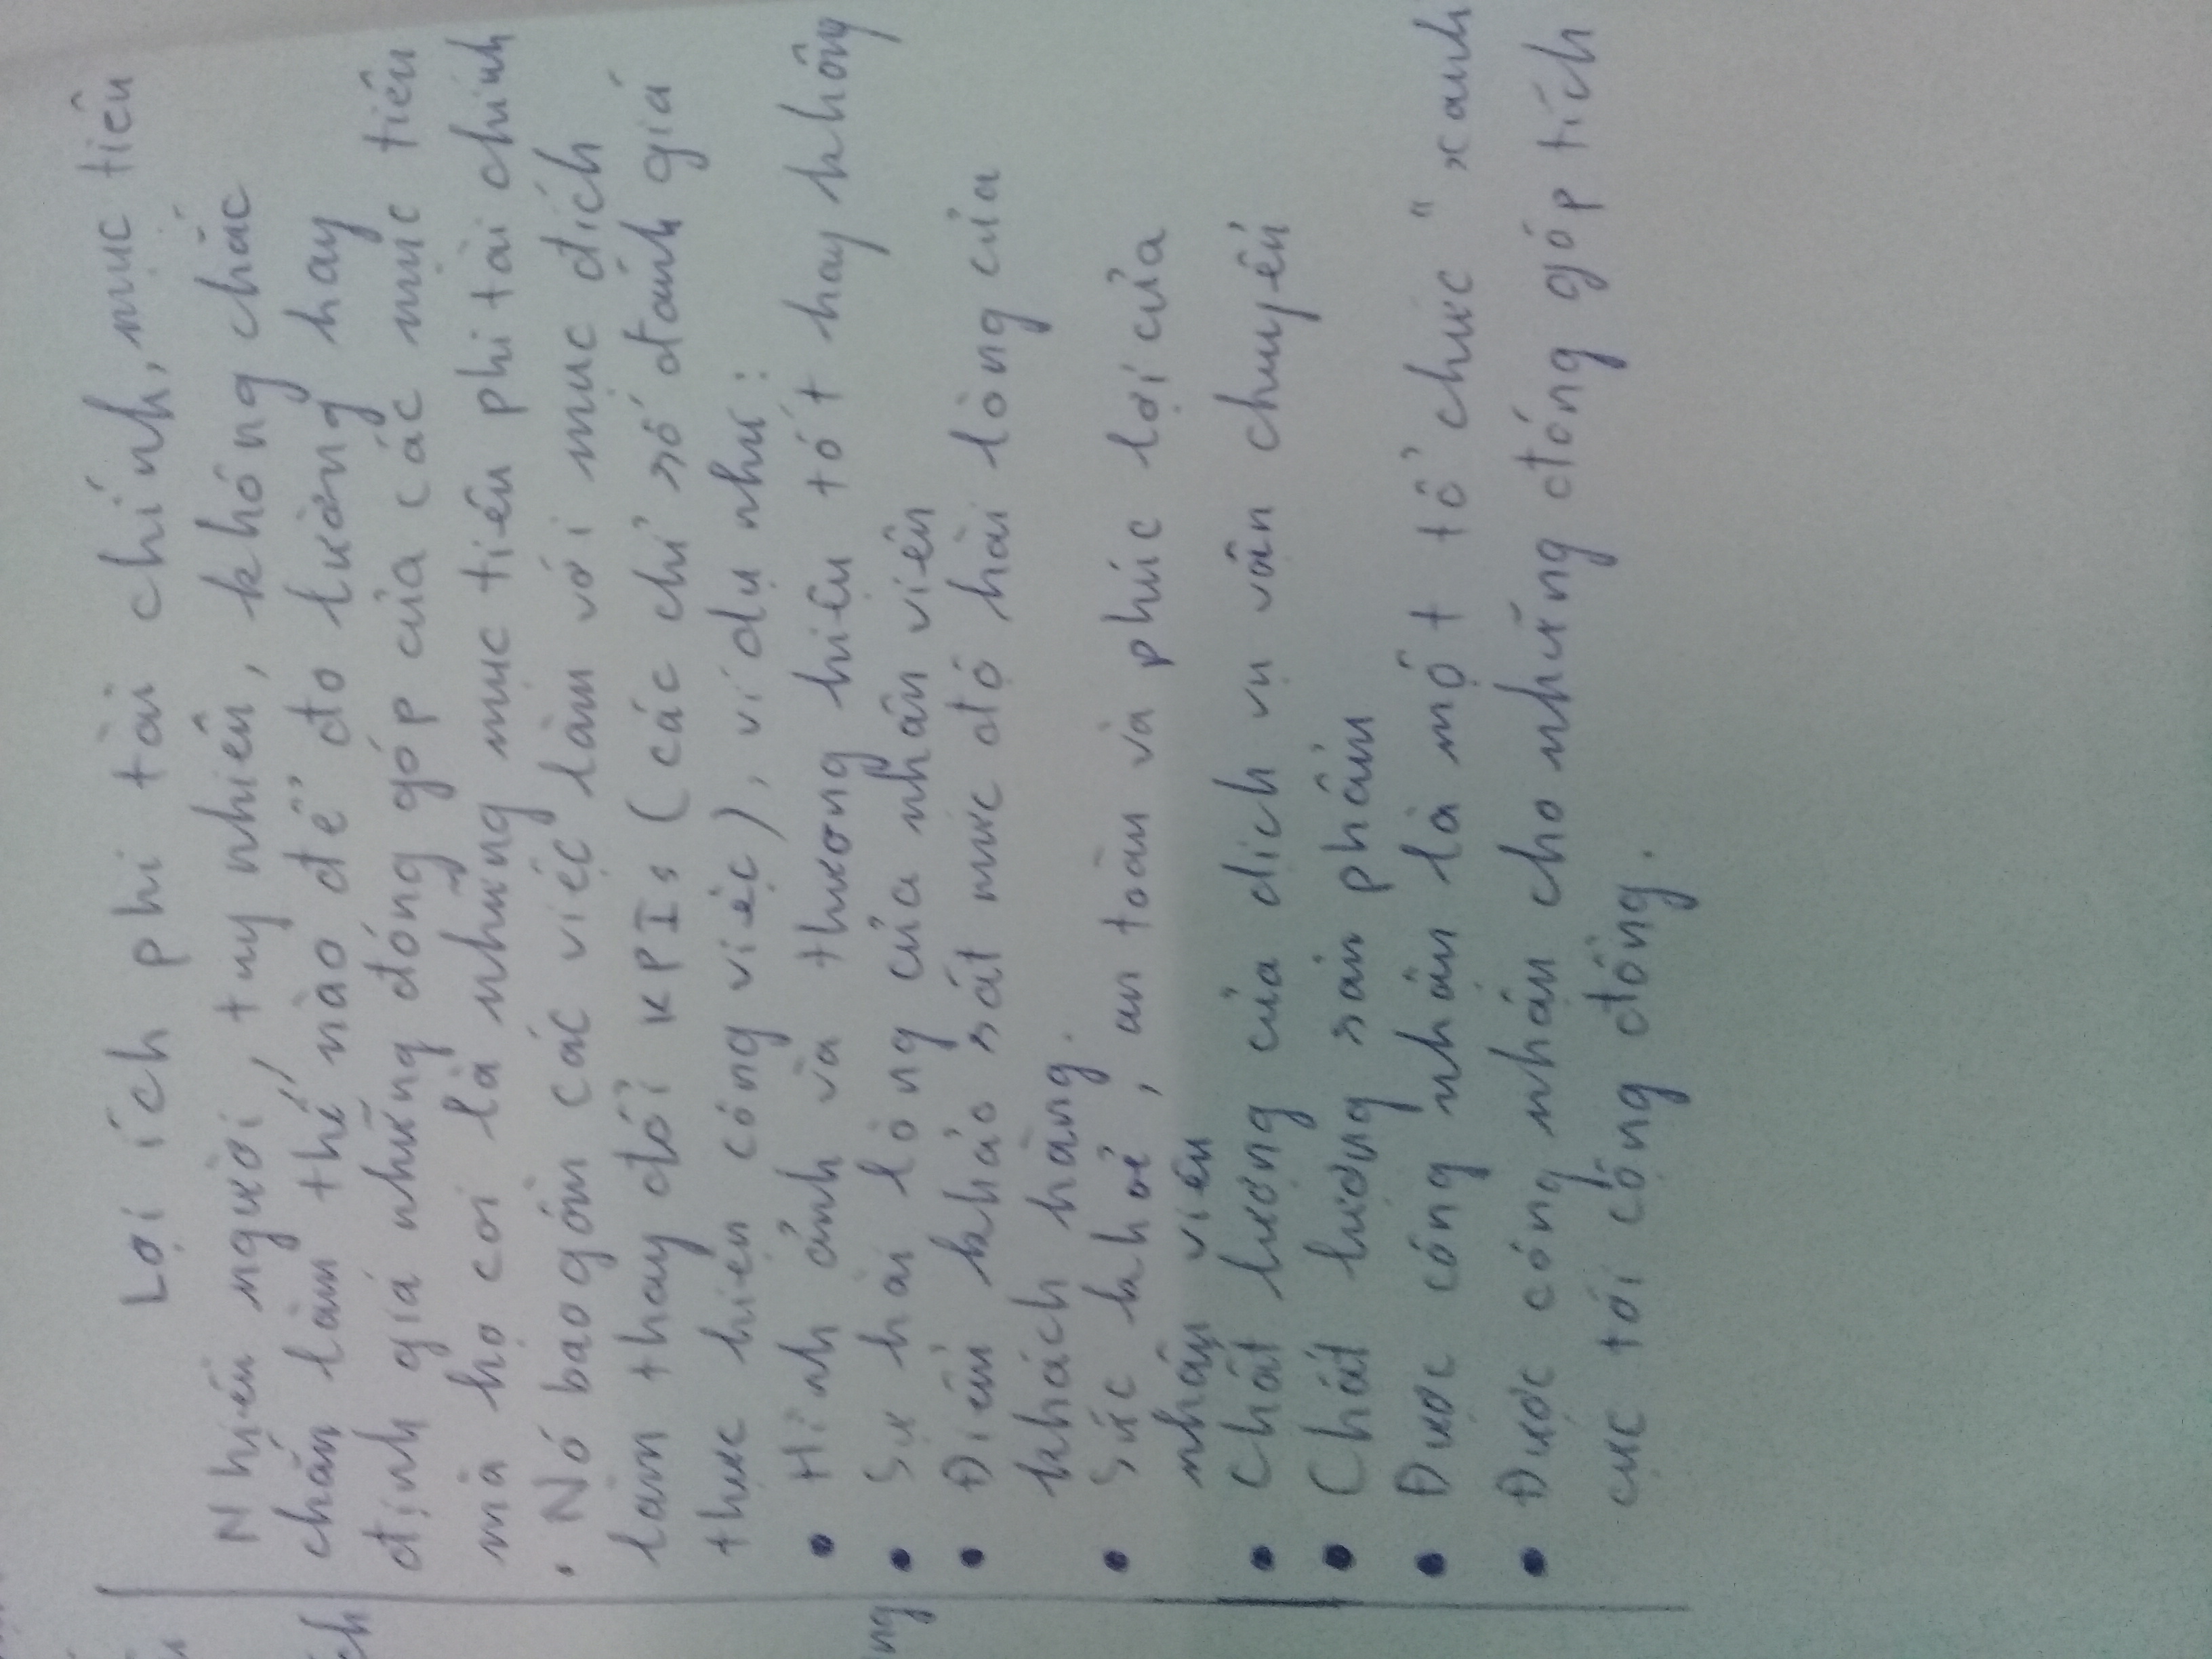 Lợi ích phi tài chính, mục tiêu
Nhiều người, tuy nhiên, không chắc
chắn làm thế nào để đo lường hay
định giá những đóng góp của các mục tiêu
mà họ coi là những mục tiêu phi tài chính
. Nó bao gồm các việc làm với mục đích
làm thay đổi KPIs (các chỉ số đánh giá
thực hiện công việc), ví dụ như:
• Hình ảnh và thương hiệu tốt hay không
• Sự hài lòng của nhân viên
• Điểm khảo sát mức độ hài lòng của
khách hàng.
• Sức khoẻ, an toàn và phúc lợi của
nhân viên
• Chất lượng của dịch vụ vận chuyển
• Chất lượng sản phẩm
• Được công nhận là một tổ chức "xanh
• Được công nhận cho những đóng góp tích
cực tới cộng đồng.
ch
ng